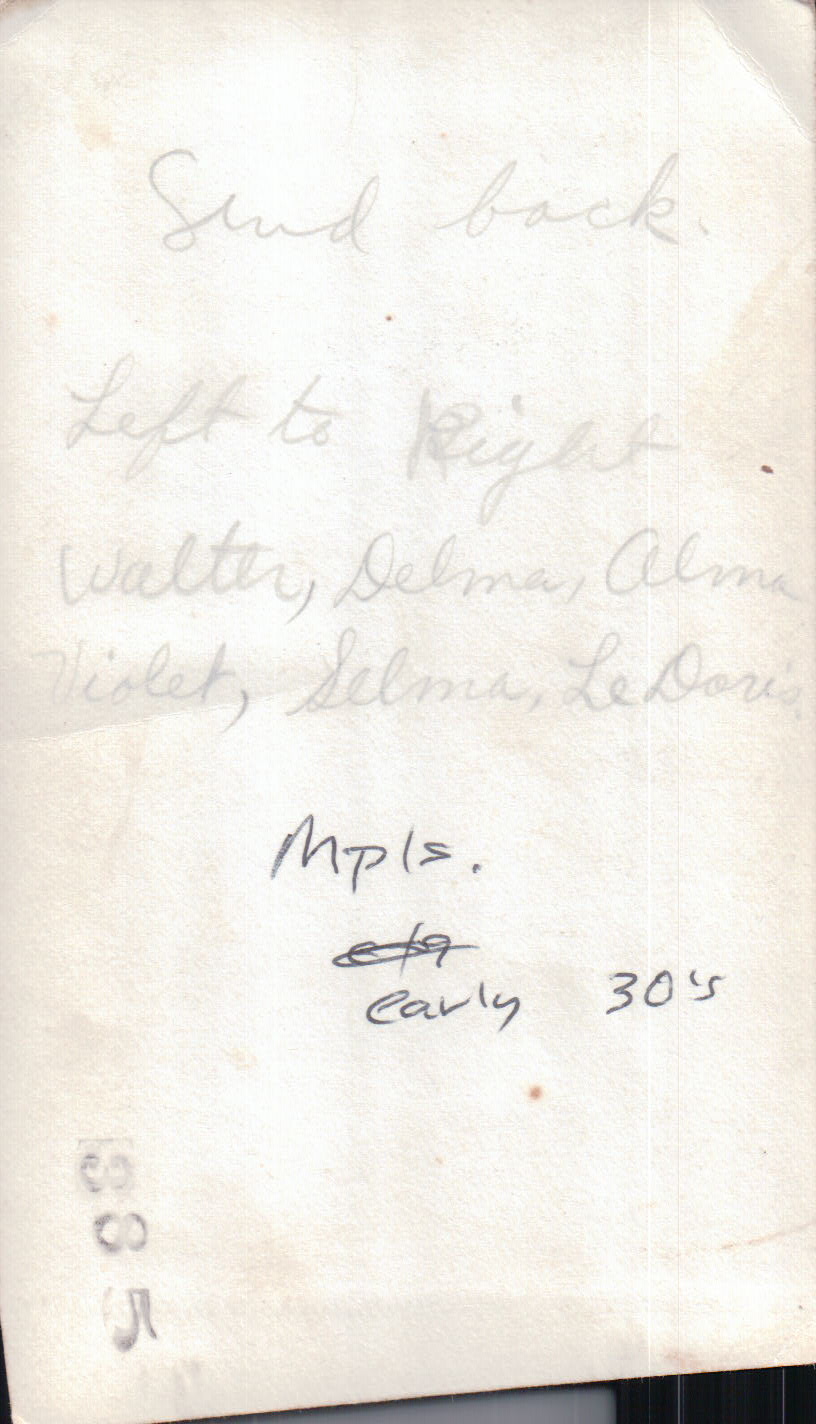 Send back.
Left to Right
Walter, Delma, Alma
Violet, Selma, LeDoris.
Mpls.
early 30's